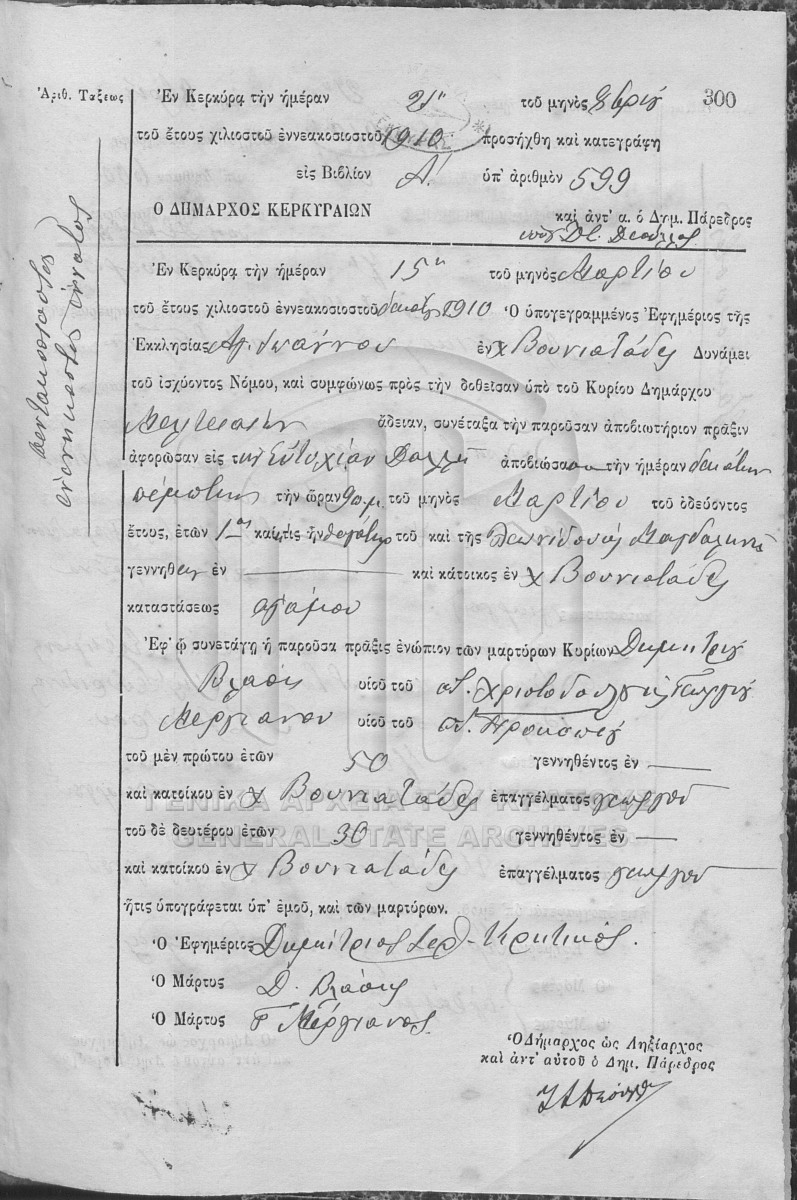 Ἀριθ. Τάξεως
πεντακοσιοστὸς
ἐνενηκοστὸς ἔννατος
Ἐν Κερκύρᾳ τὴν ἡμέραν 21ῃ τοῦ μηνὸς 300
τοῦ ἔτους χιλιοστοῦ ἐννεακοσιοστοῦ 1910 προσήχθη καὶ κατεγράφη
εἰς Βιβλίον Α! ὑπ' ἀριθμὸν 599
Ὁ ΔΗΜΑΡΧΟΣ ΚΕΡΚΥΡΑΙΩΝ καὶ ἀντ' α. ὁ Δημ. Πάρεδρος
Ἐν Κερκύρᾳ τὴν ἡμέραν 15ῃ τοῦ μηνὸς Μαρτίου
τοῦ ἔτους χιλιοστοῦ ἐννεακοσιοστοῦ 1910 Ὁ ὑπογεγραμμένος Ἐφημέριος τῆς
Ἐκκλησίας Ἁγ. Ἰωάννου ἐν χ Βουνιατάδες Δυνάμει
τοῦ ἰσχύοντος Νόμου, καὶ συμφώνως πρὸς τὴν δοθεῖσαν ὑπὸ τοῦ Κυρίου Δημάρχου
ἄδειαν, συνέταξα τὴν παροῦσαν ἀποβιωτήριον πρᾶξιν
ἀφορῶσαν εἰς τὴν Εὐτυχίαν ἀποβιώσασαν τὴν ἡμέραν δεκάτην
πέμπτην τὴν ὥραν 9 π.μ. τοῦ μηνὸς Μαρτίου τοῦ ὁδεύοντος
ἔτους, ἐτῶν καὶ ἥτις ἦν θυγάτηρ τοῦ καὶ τῆς Λεωνίδου Μαγδαληνῆς
γεννηθεῖσαν ἐν καὶ κάτοικος ἐν χ Βουνιατάδες
καταστάσεως ἀγάμου
Ἐφ' ᾧ συνετάγη ἡ παροῦσα πρᾶξις ἐνώπιον τῶν μαρτύρων Κυρίων Δημητρίου
Βλάση υἱοῦ τοῦ π. Χριστοδούλου καὶ Γεωργίου
Μεργιανου υἱοῦ τοῦ π. Προκοπίου
τοῦ μὲν πρώτου ἐτῶν 50 γεννηθέντος ἐν
καὶ κατοίκου ἐν χ Βουνιατάδες ἐπαγγέλματος γεωργοῦ
ΓΕΝΙΚΑ ΑΡΧΕΙΑ ΤΟΥ ΚΡΑΤΟΥΣ
τοῦ δὲ δευτέρου ἐτῶν 30 γεννηθέντος ἐν
GENERAL STATE ARCHIVES
καὶ κατοίκου ἐν χ Βουνιατάδες ἐπαγγέλματος γεωργοῦ
ἥτις ὑπογράφεται ὑπ' ἐμοῦ, καὶ τῶν μαρτύρων.
Ὁ Ἐφημέριος Δημήτριος Ἱερ. Κρητικὸς.
Ὁ Μάρτυς Δ. Βλάσης
Ὁ Μάρτυς Γ Μεργιανος
Ὁ Δήμαρχος ὡς Ληξίαρχος
καὶ ἀντ' αὐτοῦ ὁ Δημ. Πάρεδρος